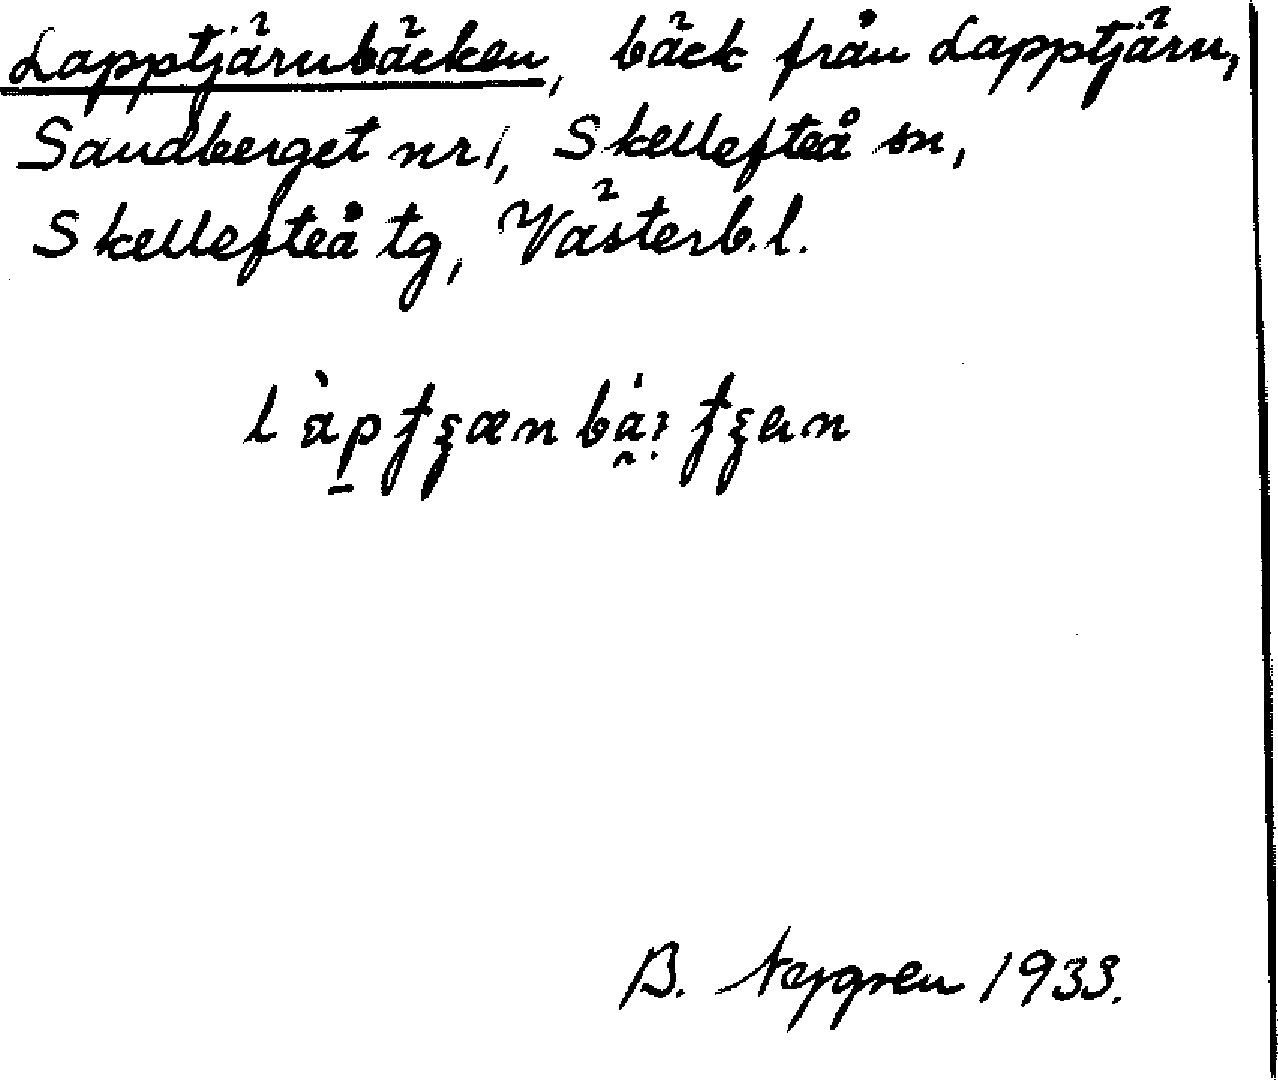 Lapptjärnbäcken, bäck från Lapptjärn,
Sandberget nr 1, Skellefteå sn,
Skellefteå tg, Västerb. l.
B. Nygren 1933.